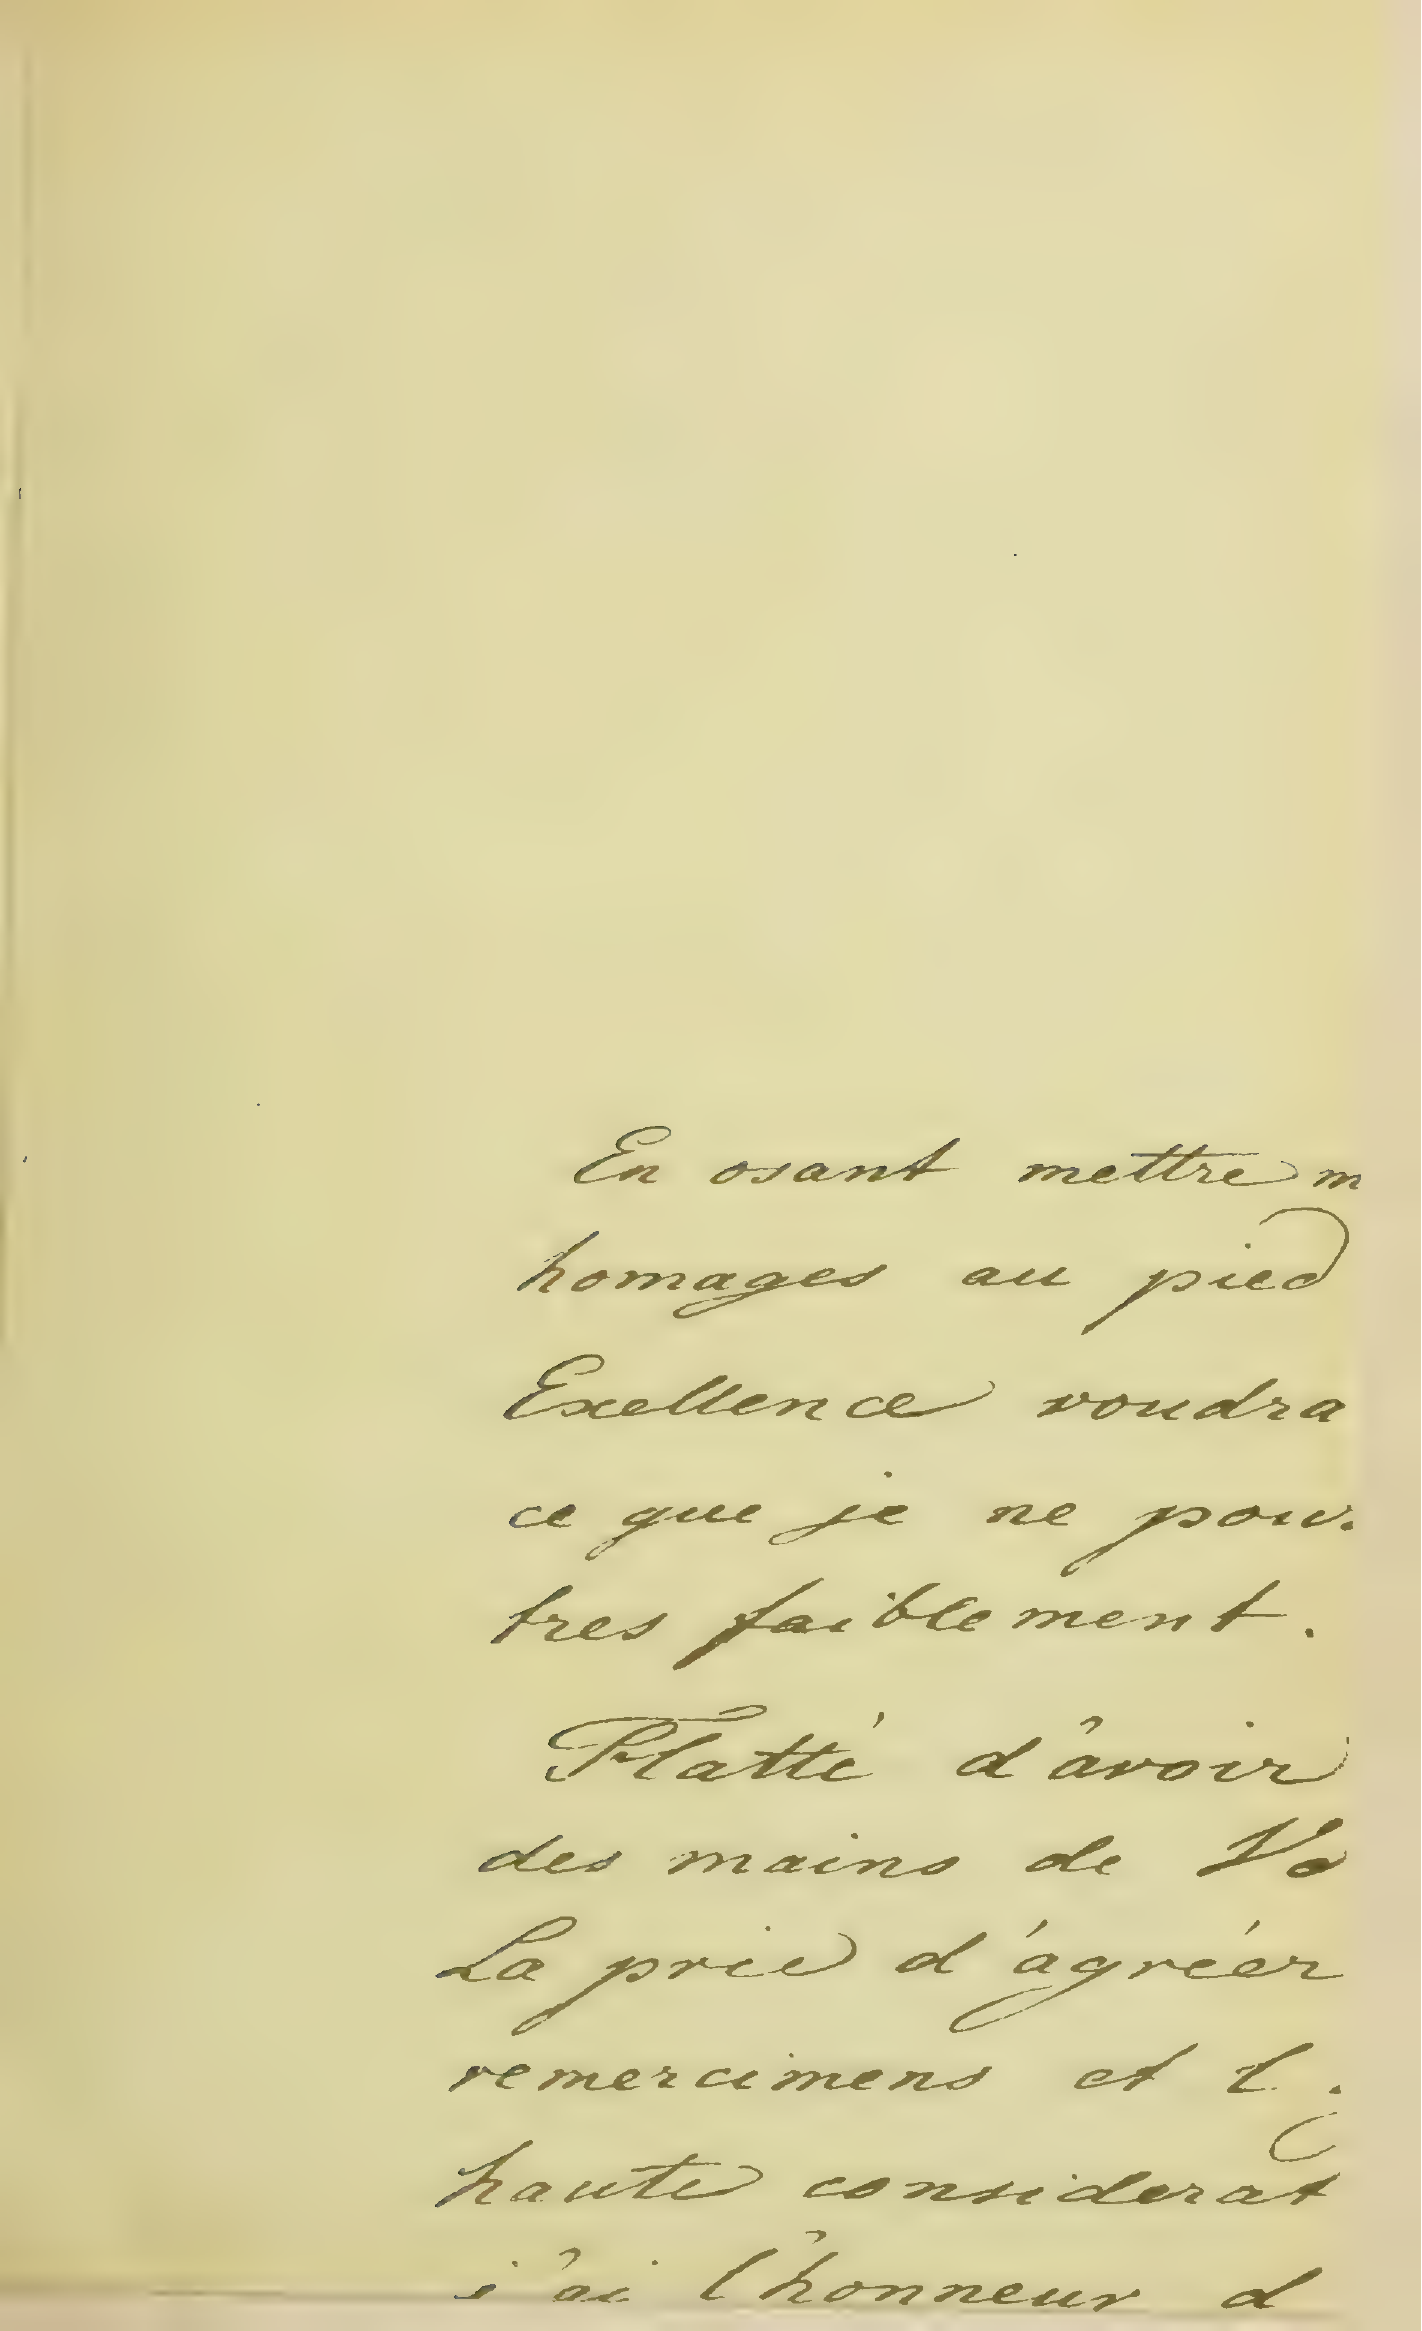 En osant mettre m
homages au pied
Exellence voudra
ce que je ne pou
tres faiblement.
Flatté d'avoir
des mains de Vo
La prie d'agréer
remercimens et l
haute considerat
j'ai l'honneur d